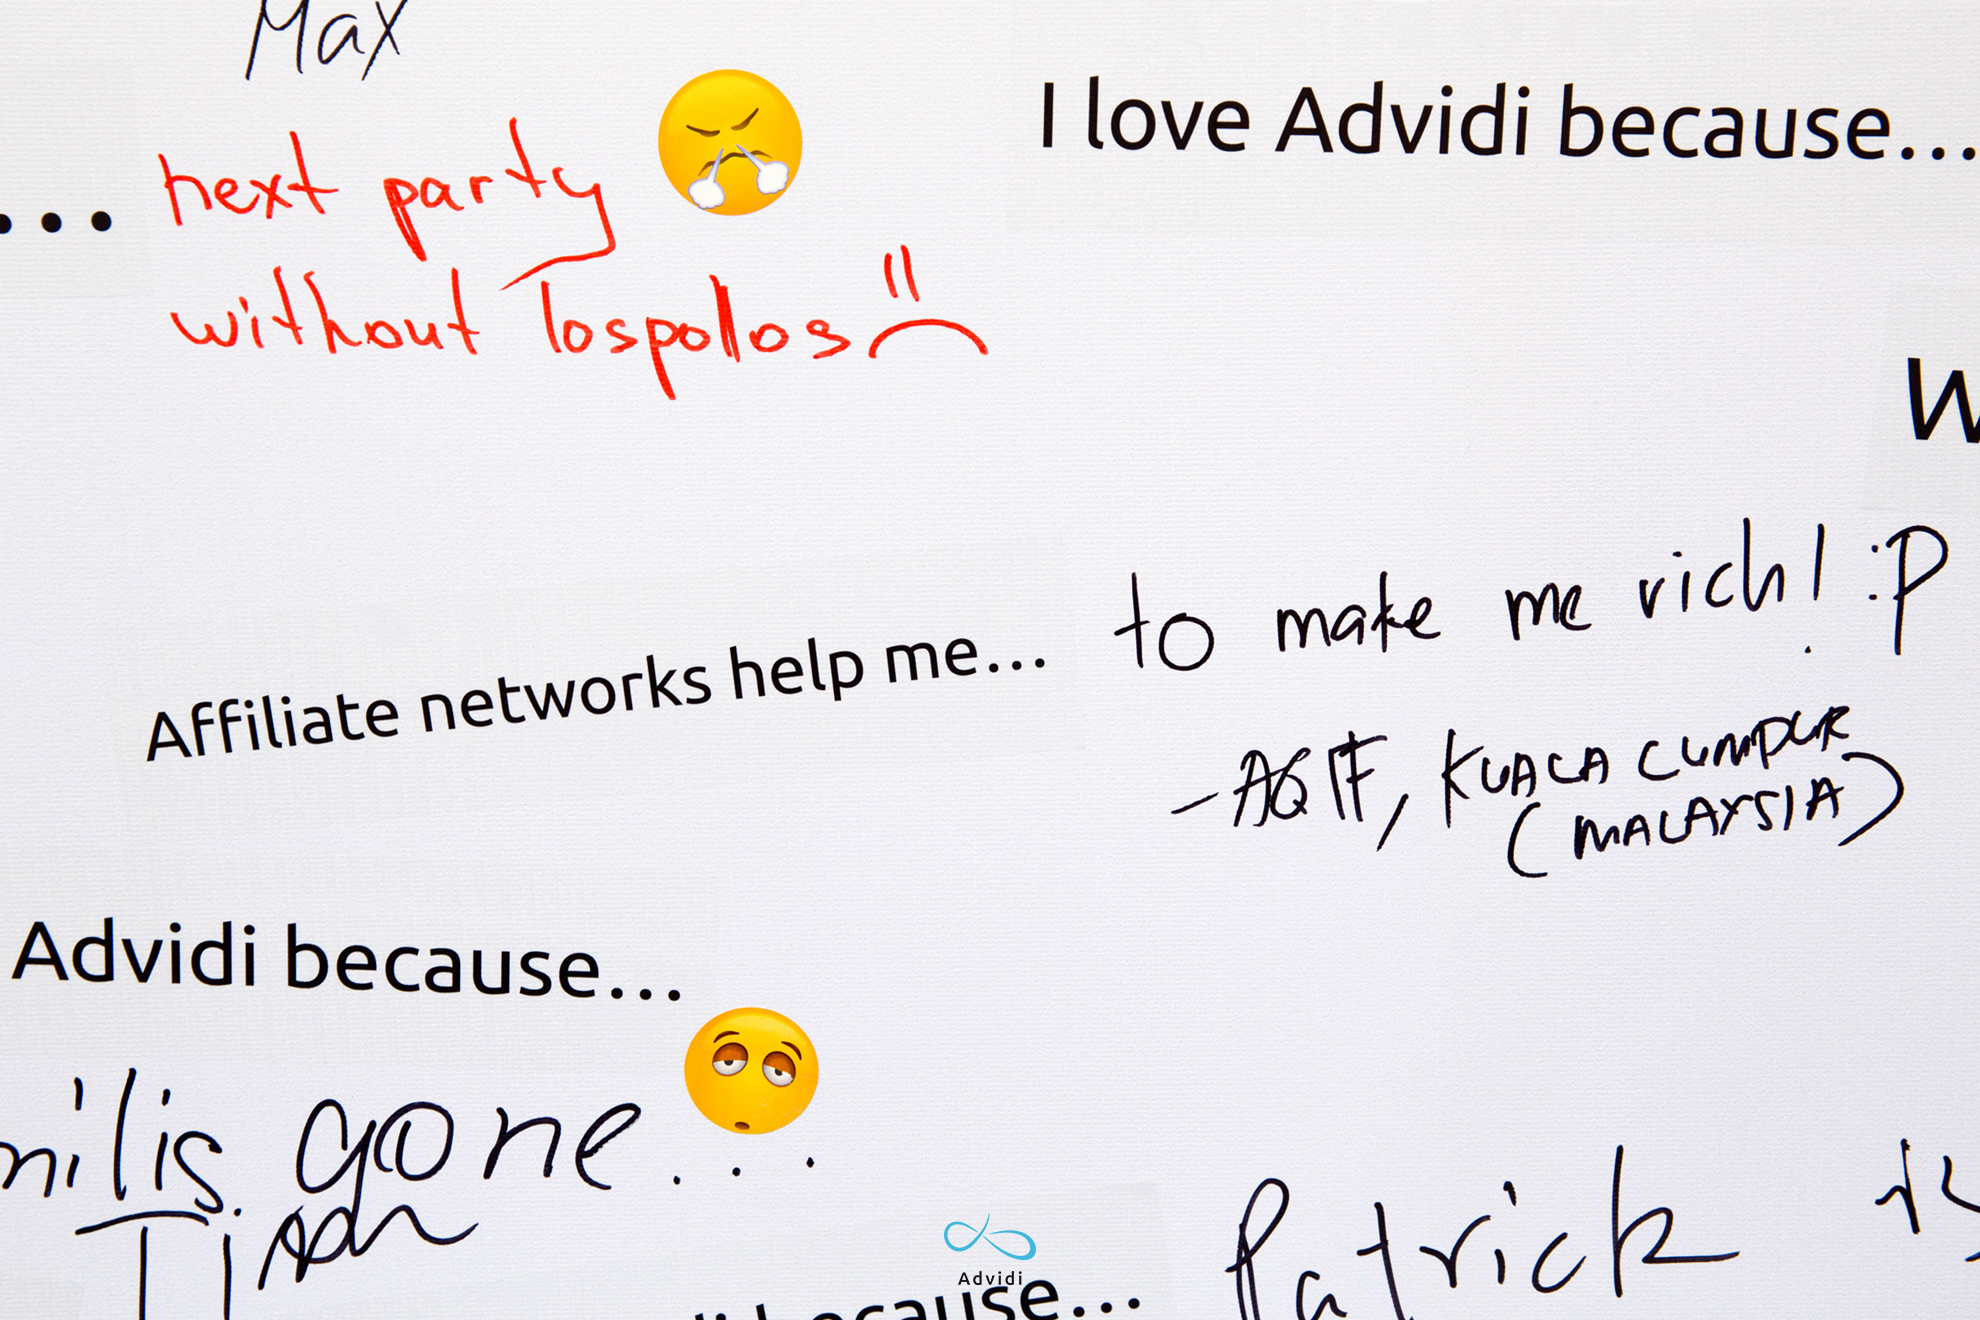 Max
... next party
without lospollos =(
I love Advidi because...
W
Affiliate networks help me... to make me rich! :P
- AQIF, KUALA LUMPUR
(MALAYSIA)
Advidi because...
is gone...
Patrick is
Advidi
because...